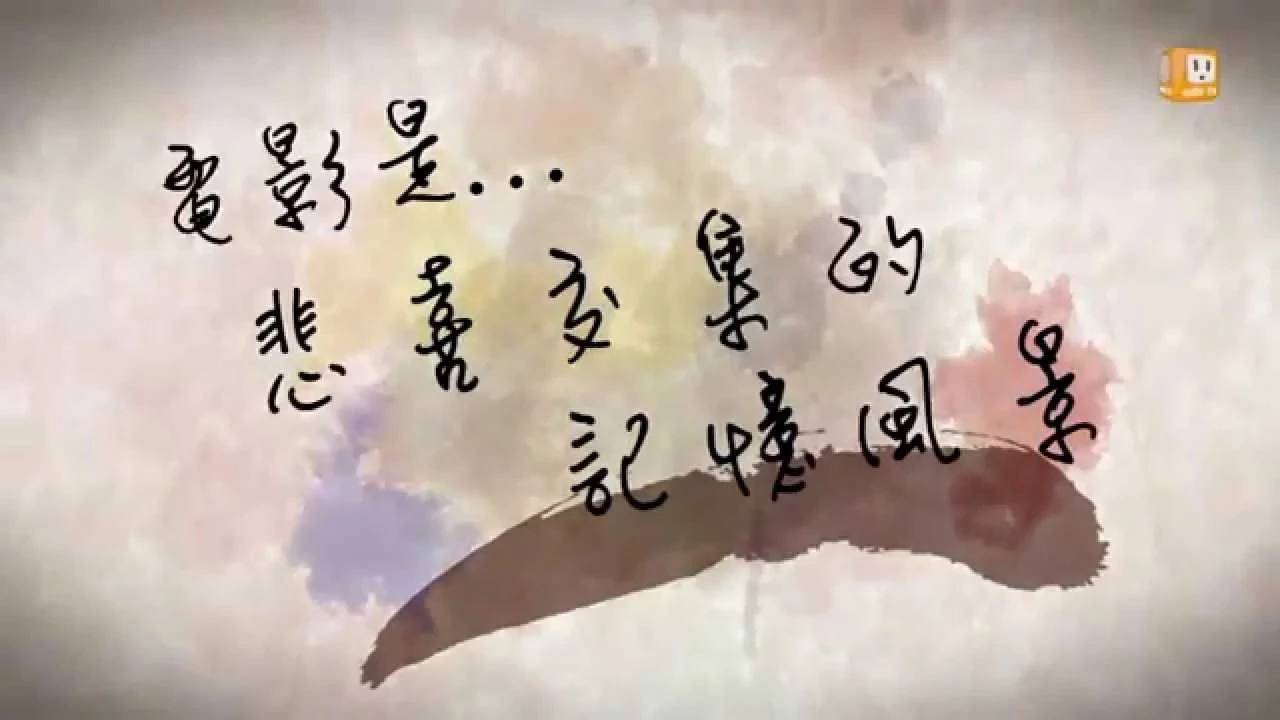 電影是...
悲喜交集的
記憶風景